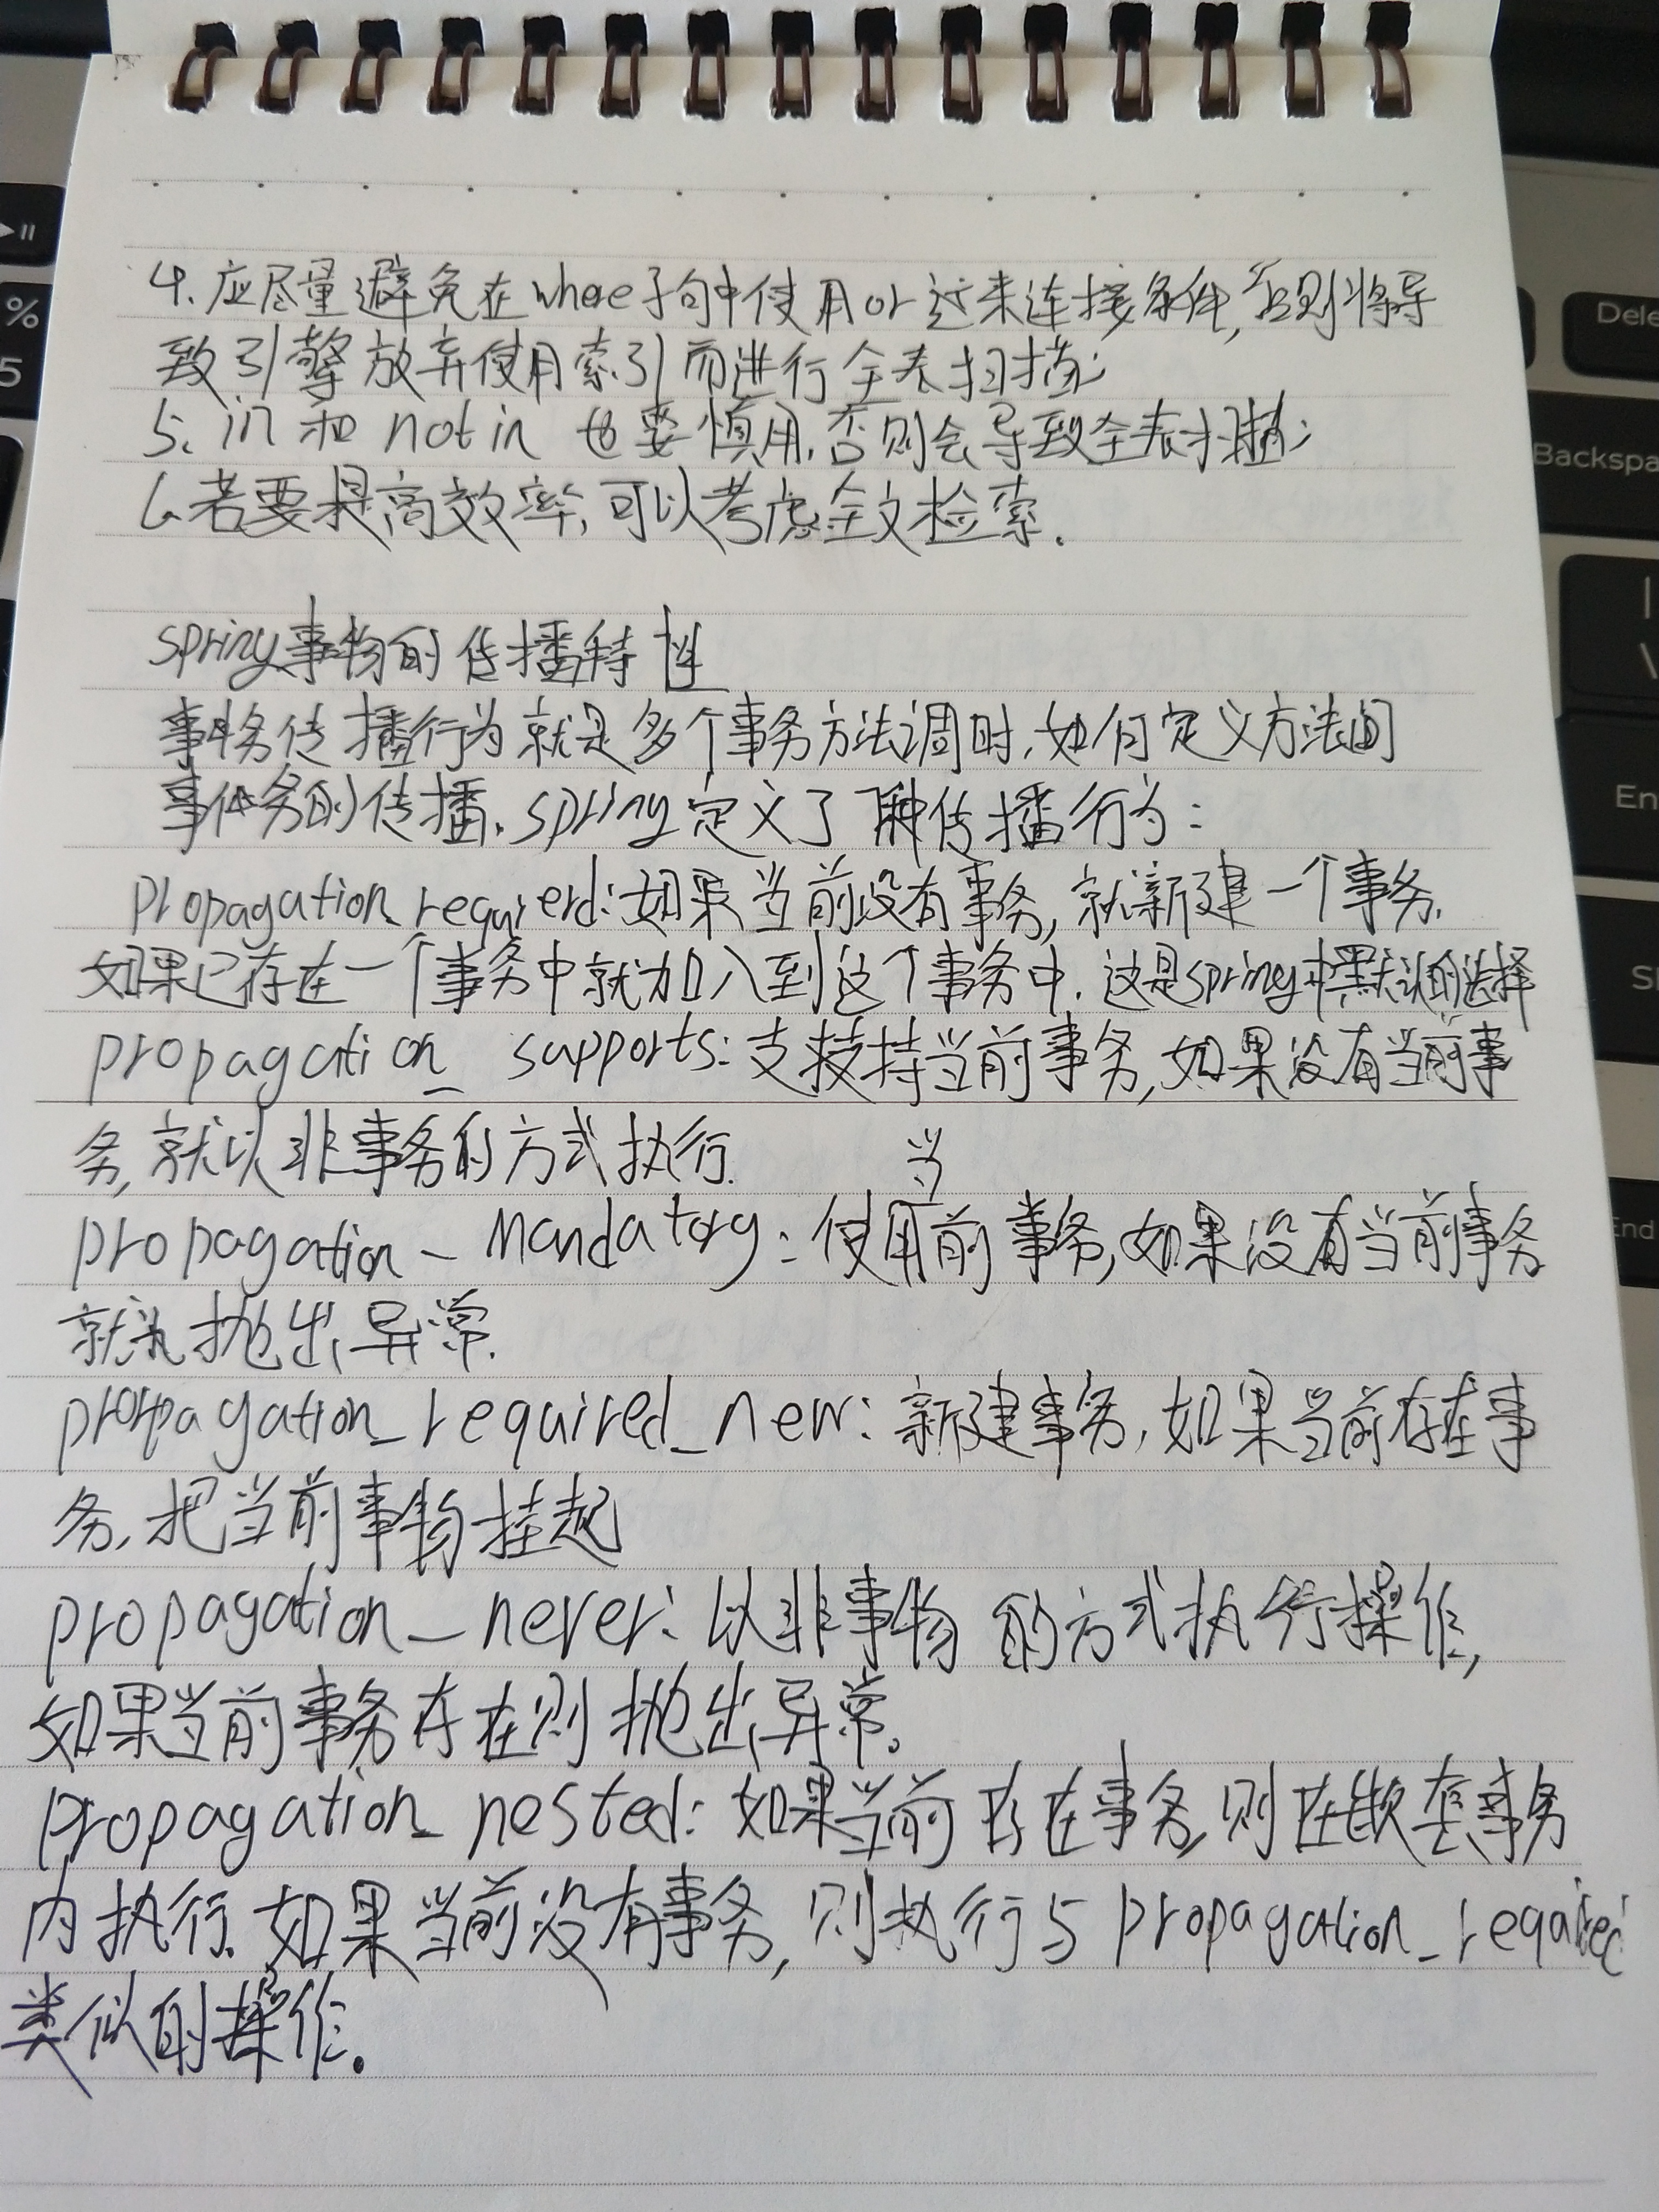 4.应尽量避免在where子句中使用or 这来连接条件,否则将导
致引擎放弃使用索引而进行全表扫描;
5.in和 not in 也要慎用,否则会导致全表扫描;
6.若要提高效率,可以考虑全文检索.
spring事物的传播特性
事务传播行为就是多个事务方法调时,如何定义方法间
事务的传播.spring定义了7种传播行为:
propagation_requrerd:如果当前没有事务,就新建一个事务.
如果已存在一个事务中就加入到这个事务中.这是spring中默认的选择
propagation_ supports:支持当前事务,如果没有当前事
务,就以非事务的方式执行.
propagation_Mandatory:使用当前事务,如果没有当前事务
就抛出异常.
propagation_required_new:新建事务,如果当前存在事
务,把当前事物挂起
propagation_never:以非事物的方式执行操作,
如果当前事务存在则抛出异常.
propagation_nested:如果当前存在事务,则在嵌套事务
内执行.如果当前没有事务,则执行与propagation_required
类似的操作.
Dele
Backspa
En
S
End
%
5